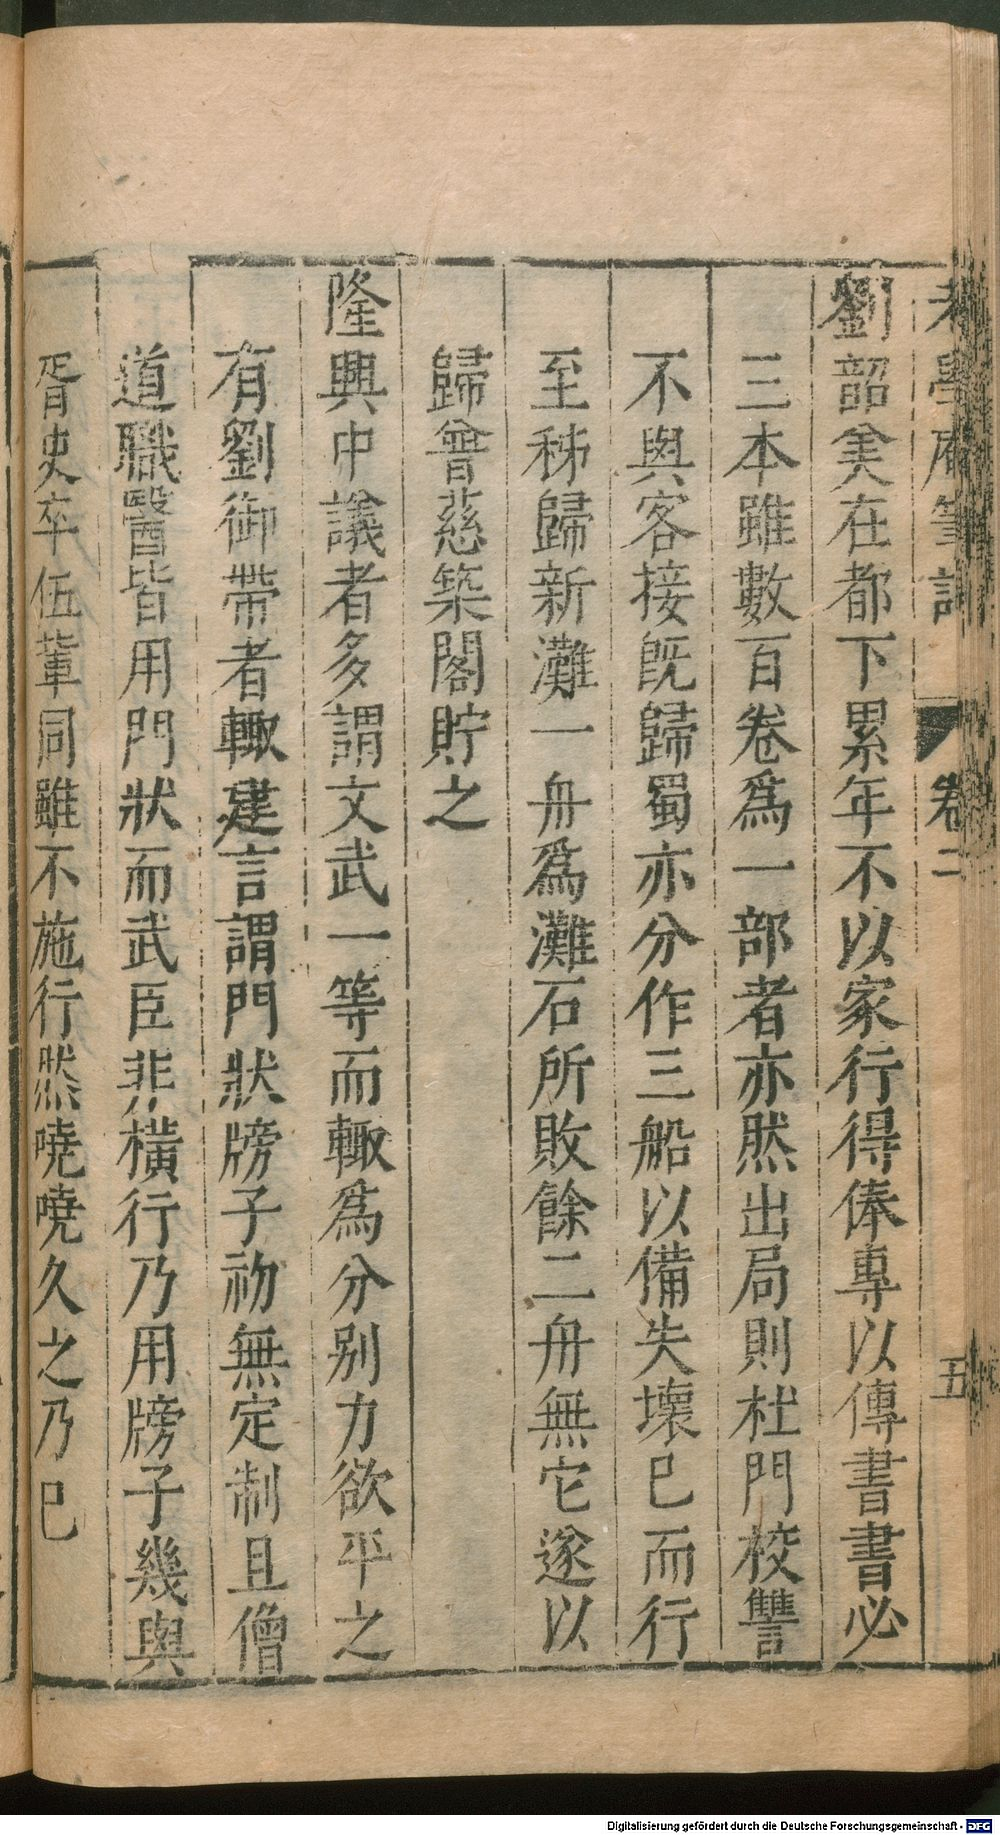 老學庵筆記 卷二 五
劉韶美在都下累年不以家行得俸專以傳書書必
三本雖數百卷爲一部者亦然出局則杜門校讐
不與客接旣歸蜀亦分作三船以備失壞已而行
至秭歸新灘一舟爲灘石所敗餘二舟無它遂以
歸普慈築閣貯之
隆興中議者多謂文武一等而輙爲分别力欲平之
有劉御帶者輙建言謂門狀牓子初無定制且僧
道職醫皆用門狀而武臣非橫行乃用牓子幾與
胥史卒伍輩同雖不施行然嘵嘵久之乃已
Digitalisierung gefördert durch die Deutsche Forschungsgemeinschaft - DFG